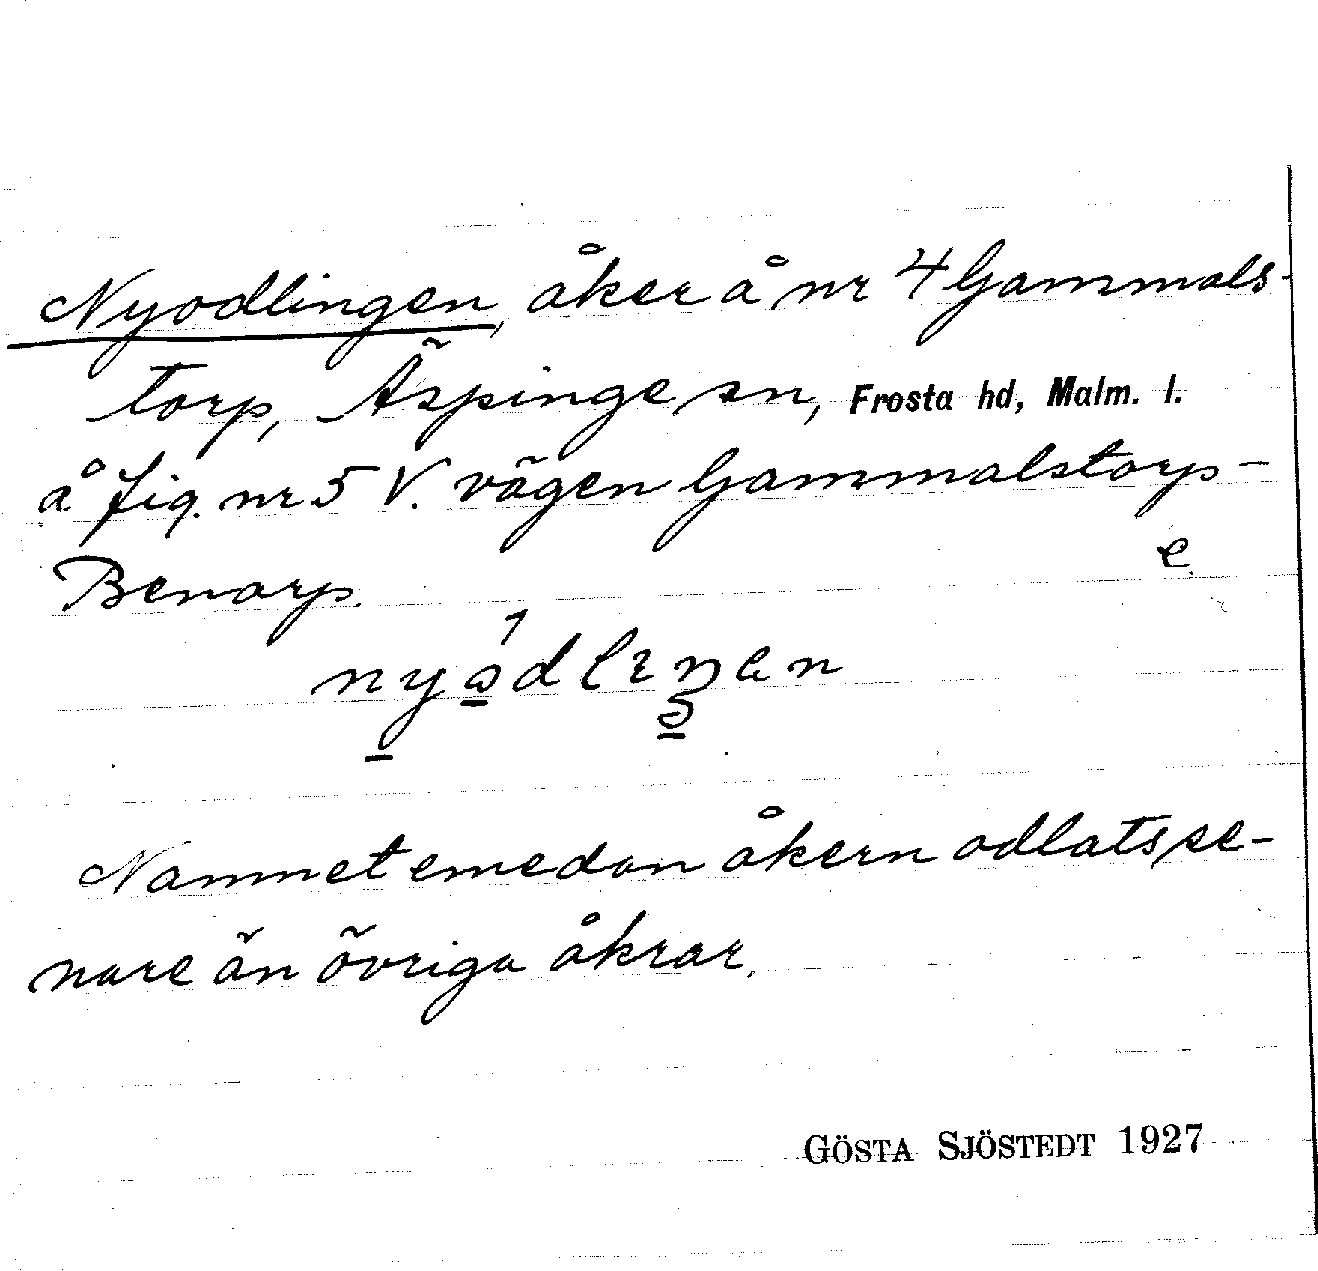 Nyodlingen, åker å nr 4 Gammals-
torp, Äspinge sn, Frosta hd, Malm. l.
å fig. nr 5 V. vägen Gammalstorp-
Benarp. e.
Namnet emedan åkern odlats se-
nare än övriga åkrar.
GÖSTA SJÖSTEDT 1927